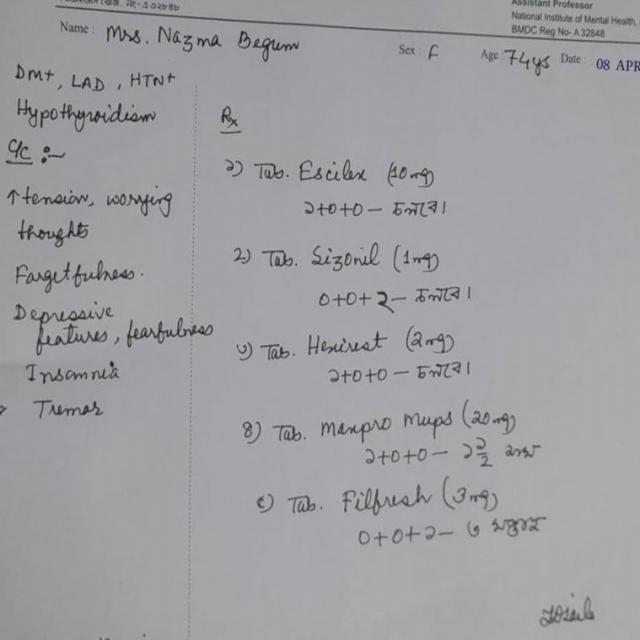 Assistant Professor
National Institute of Mental Health,
BMDC Reg No- A 32848
Name: Mrs. Nazma Begum Sex: F Age: 74ys Date: 08 APR
DM+, LAD, HTN+
Hypothyroidism
C/C :-
↑tension, worrying
thoughts
Fargetfulness.
Depressive
features, fearfulness
Insomnia
Tremor
Rx
১) Tab. Escilex (10mg)
১+০+০ - চলবে।
২) Tab. Sizonil (1mg)
০+০+১ - চলবে।
৩) Tab. Hexirest (2mg)
১+০+০ - চলবে।
৪) Tab. Maxpro Mups (20mg)
১+০+০ - ১ ১/২ মাস
৫) Tab. Filfresh (3mg)
০+০+১ - ৩ সপ্তাহ